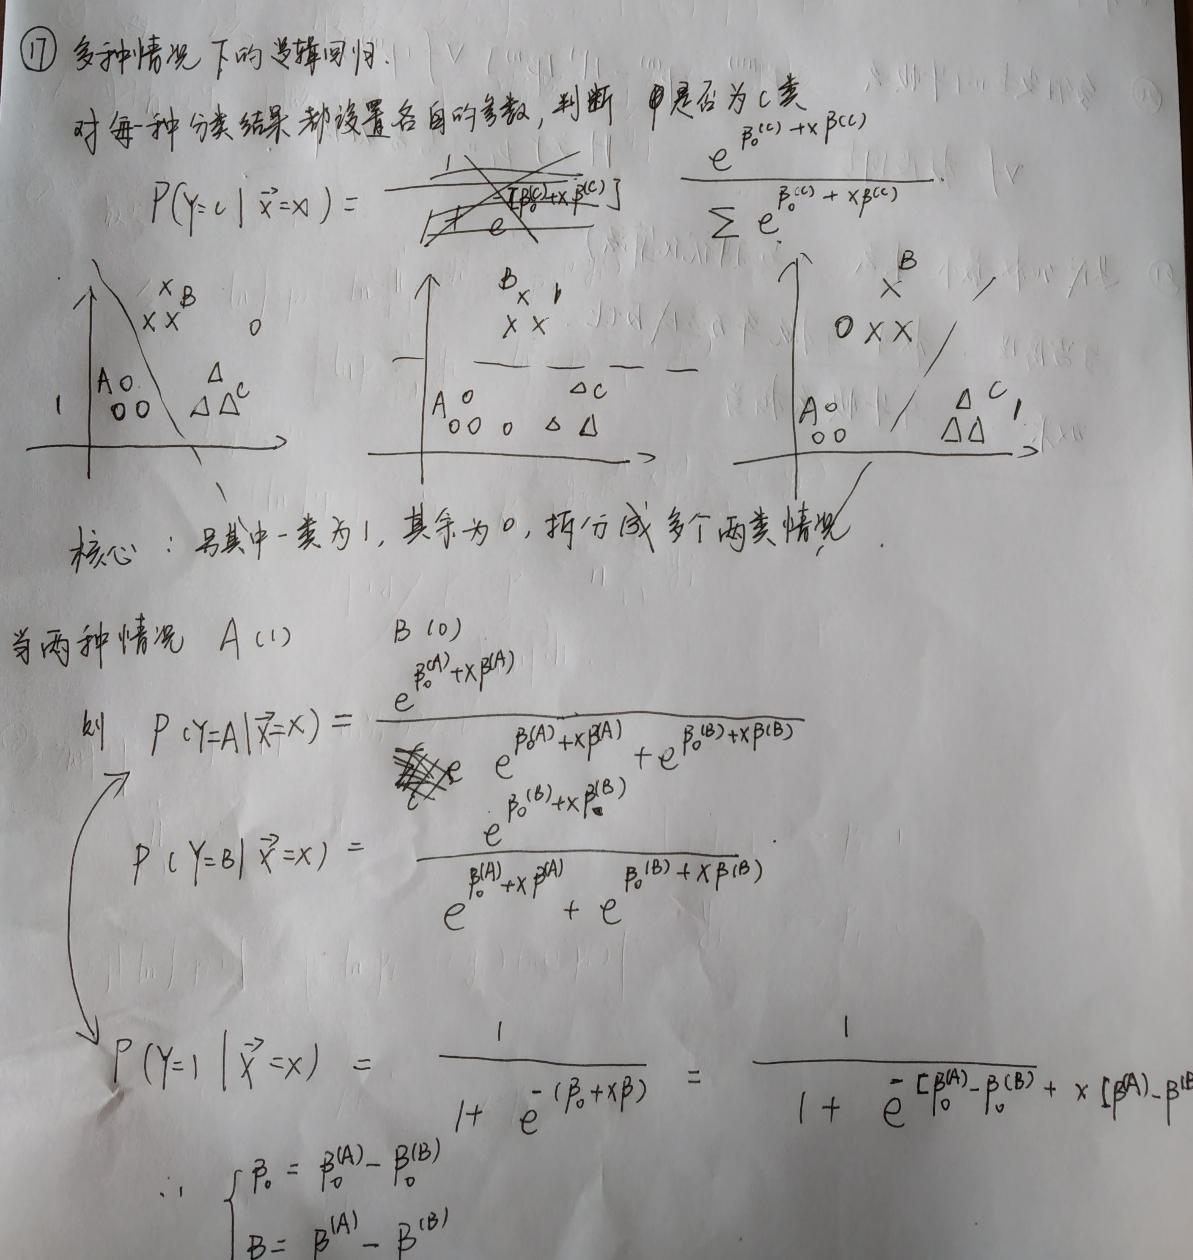 ⑰ 多种情况下的逻辑回归.
对每一种分类结果都设置各自的参数, 判断 甲是否为C类
P(Y=c | x⃗=x) = e^{β₀^{(c)}+xβ^{(c)}} / Σ e^{β₀^{(c)}+xβ^{(c)}}
B B B
A C A C A C
1 1 1
0 0 0
核心: 另其中一类为1, 其余为0, 拆分成多个两类情况.
当两种情况 A(1) B(0)
则 P(Y=A|x⃗=x) = e^{β₀^{(A)}+xβ^{(A)}} / e^{β₀^{(A)}+xβ^{(A)}} + e^{β₀^{(B)}+xβ^{(B)}}
P(Y=B|x⃗=x) = e^{β₀^{(B)}+xβ^{(B)}} / e^{β₀^{(A)}+xβ^{(A)}} + e^{β₀^{(B)}+xβ^{(B)}}
P(Y=1|x⃗=x) = 1 / 1+e^{-(β₀+xβ)} = 1 / 1+e^{-[β₀^{(A)}-β₀^{(B)}+x[β^{(A)}-β^{(B}
∴ { β₀ = β₀^{(A)} - β₀^{(B)}
β = β^{(A)} - β^{(B)}